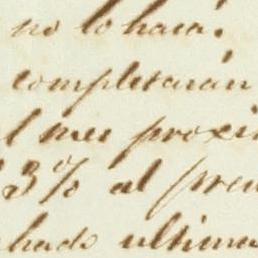 no lo hará.
completarán
l mes proxi
3% al pre
hado ultima